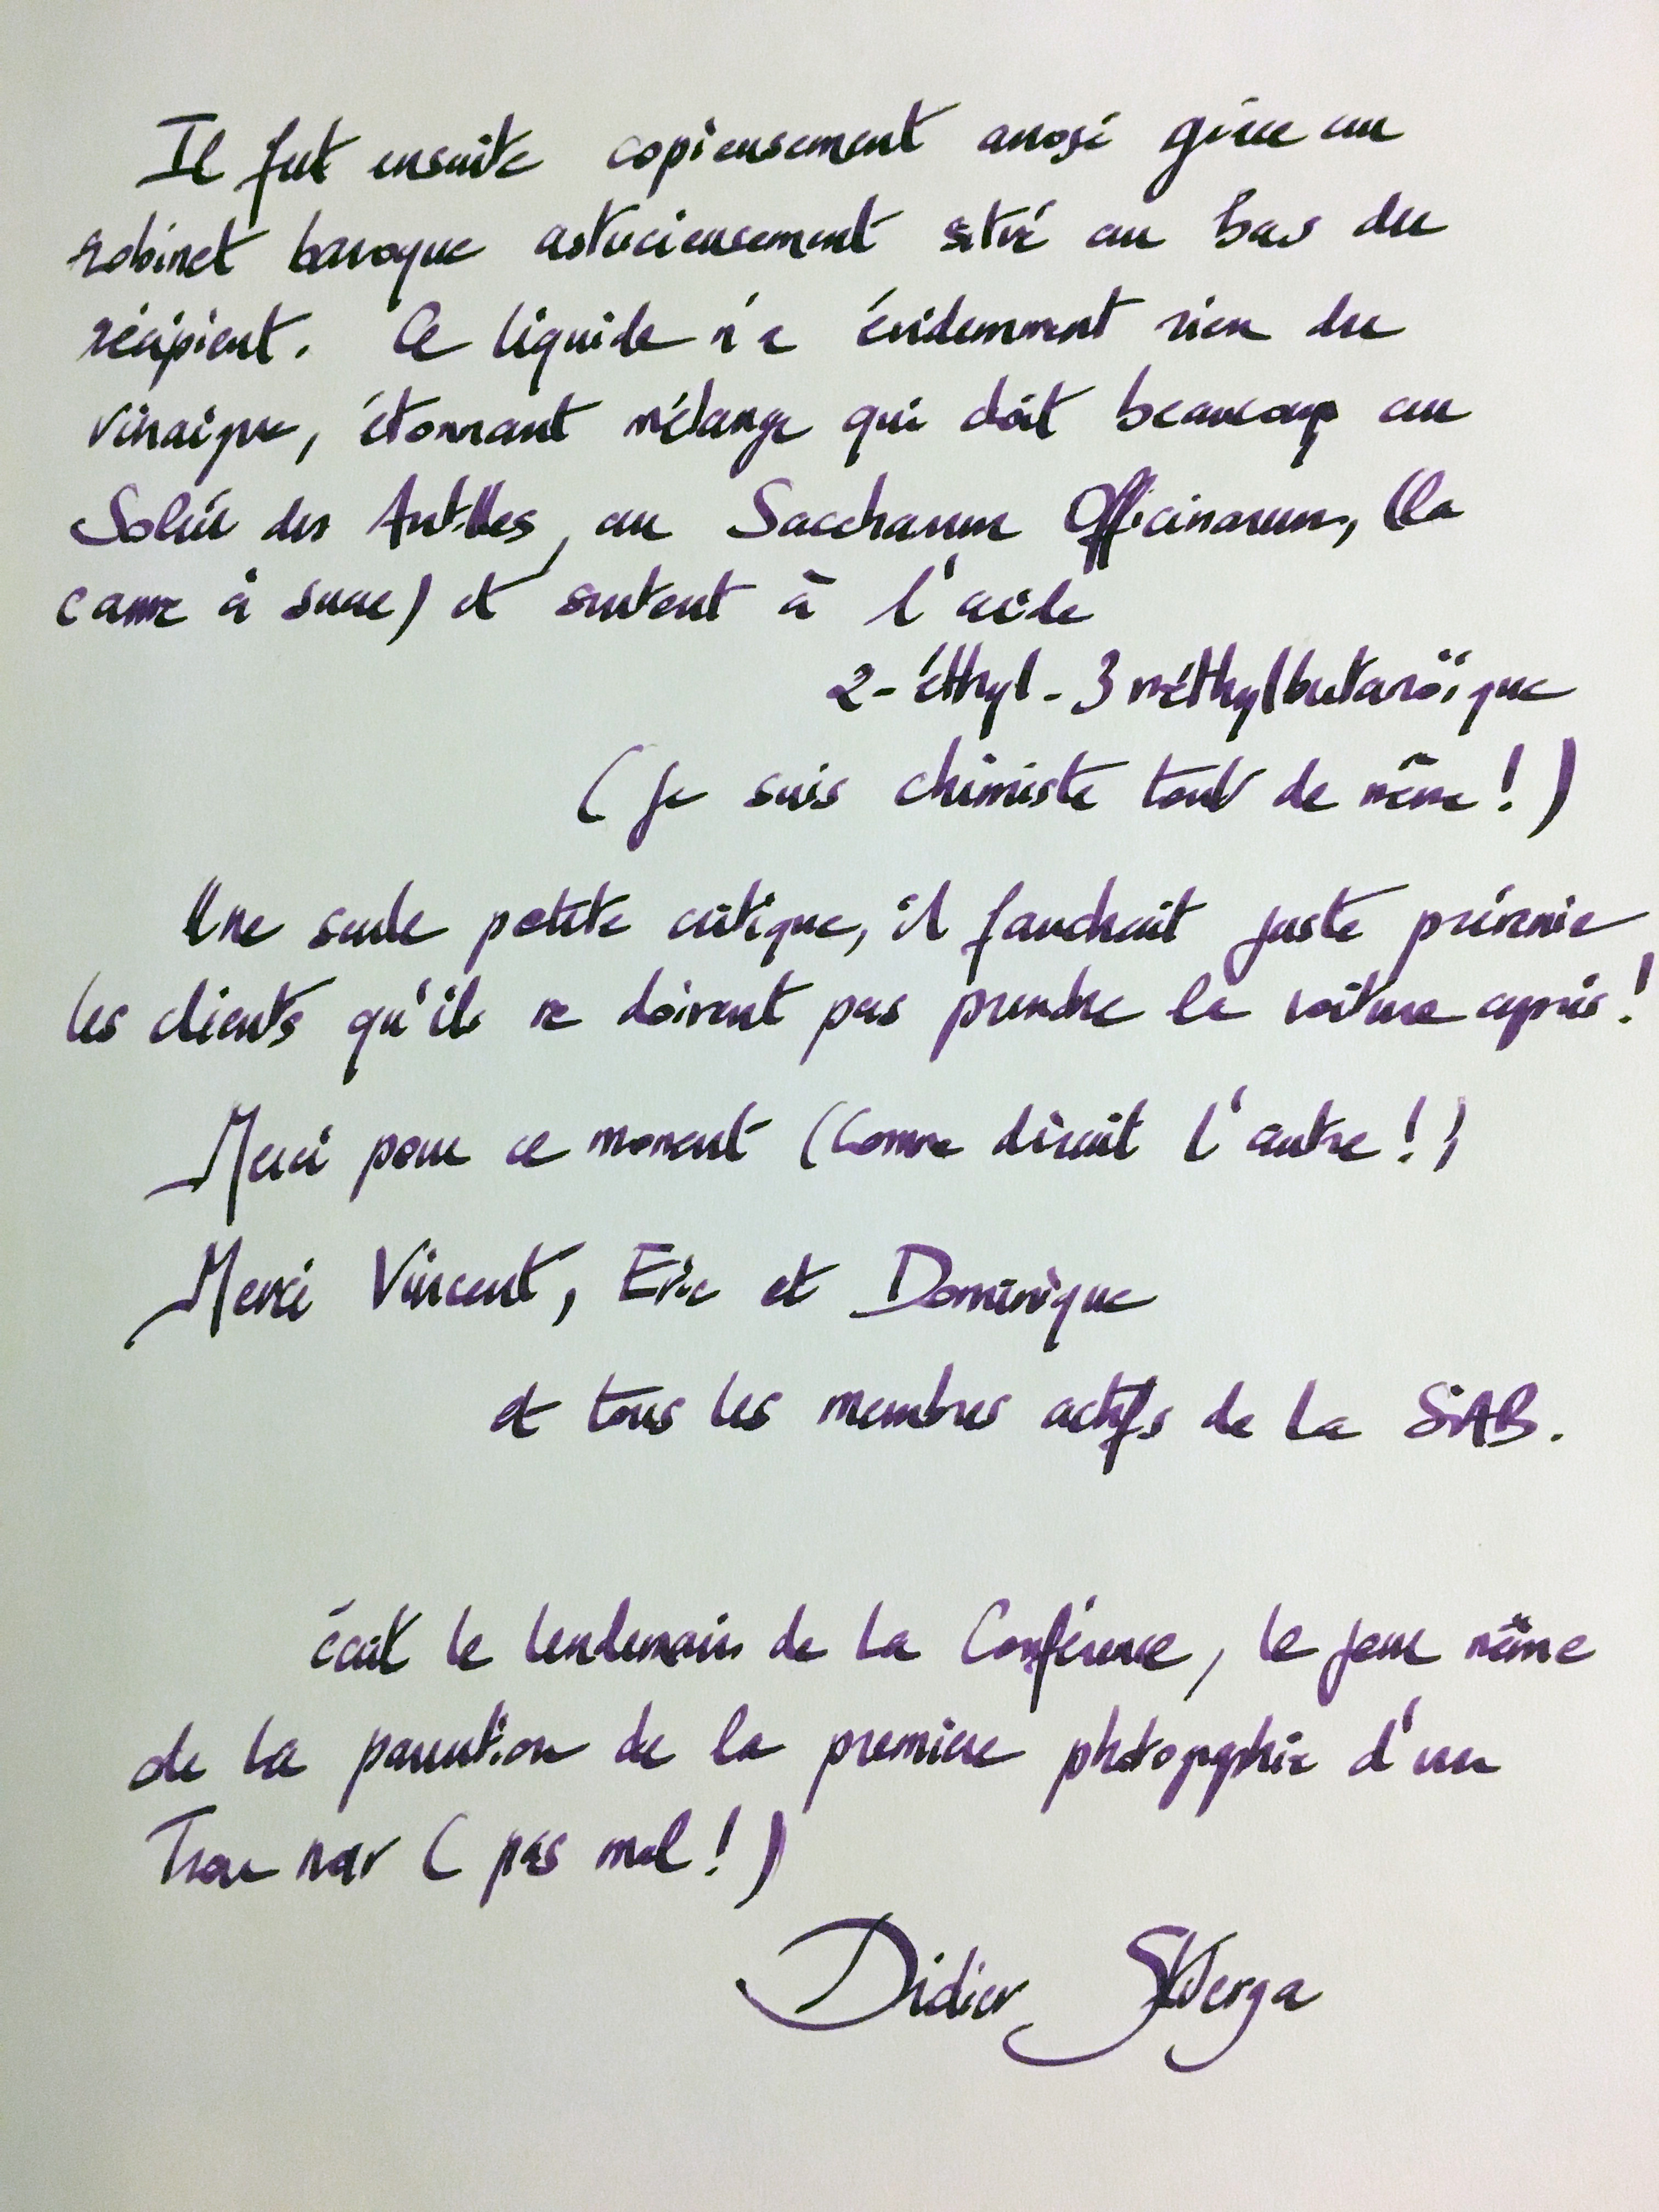 Il fut ensuite copieusement arrosé grâce au
robinet baroque astucieusement situé au bas du
récipient. Ce liquide n'a évidemment rien du
vinaigre, étonnant mélange qui doit beaucoup au
Soleil des Antilles, au Saccharum Officinarum, (la
canne à sucre) et surtout à l'acide
2-éthyl-3méthylbutanoïque
(Je suis chimiste tout de même!)
Une seule petite critique, il faudrait juste prévenir
les clients qu'ils ne doivent pas prendre la voiture après!
Merci pour ce moment (Comme dirait l'autre!)
Merci Vincent, Eric et Dominique
et tous les membres actifs de la SAB.
écrit le lendemain de la Conférence, le jour même
de la parution de la première photographie d'un
Trou noir (pas mal!)
Didier